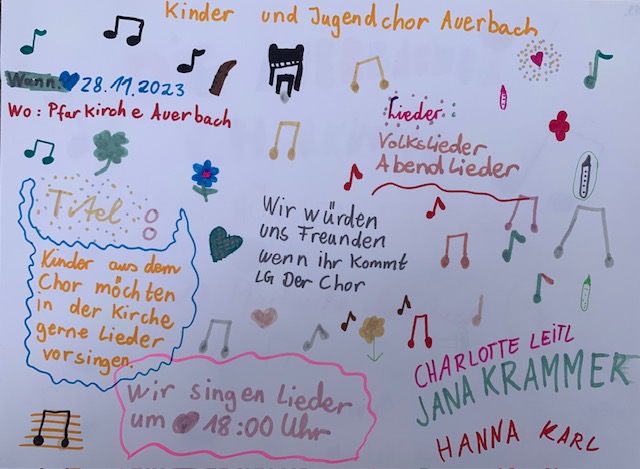 Kinder und Jugendchor Auerbach
Wann: 28.11.2023
Wo: Pfarkirche Auerbach
Lieder:
Volkslieder
Abendlieder
Titel
Kinder aus dem
Chor möchten
in der Kirche
gerne Lieder
vorsingen.
Wir würden
uns Freunden
wenn ihr kommt
LG Der Chor
Wir singen Lieder
um 18:00 Uhr
CHARLOTTE LEITL
JANA KRAMMER
HANNA KARL